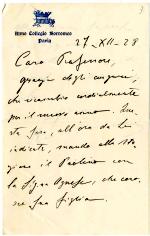 Almo Collegio Borromeo
Pavia
27-XII-28
Caro Professore,
grazie degli auguri,
che ricambio cordialmente
per il nuovo anno.
sta sera, all'ora da Lei
indicata, mando alla
il Paolino con
la Sig.na Agnese, che
sua figlia